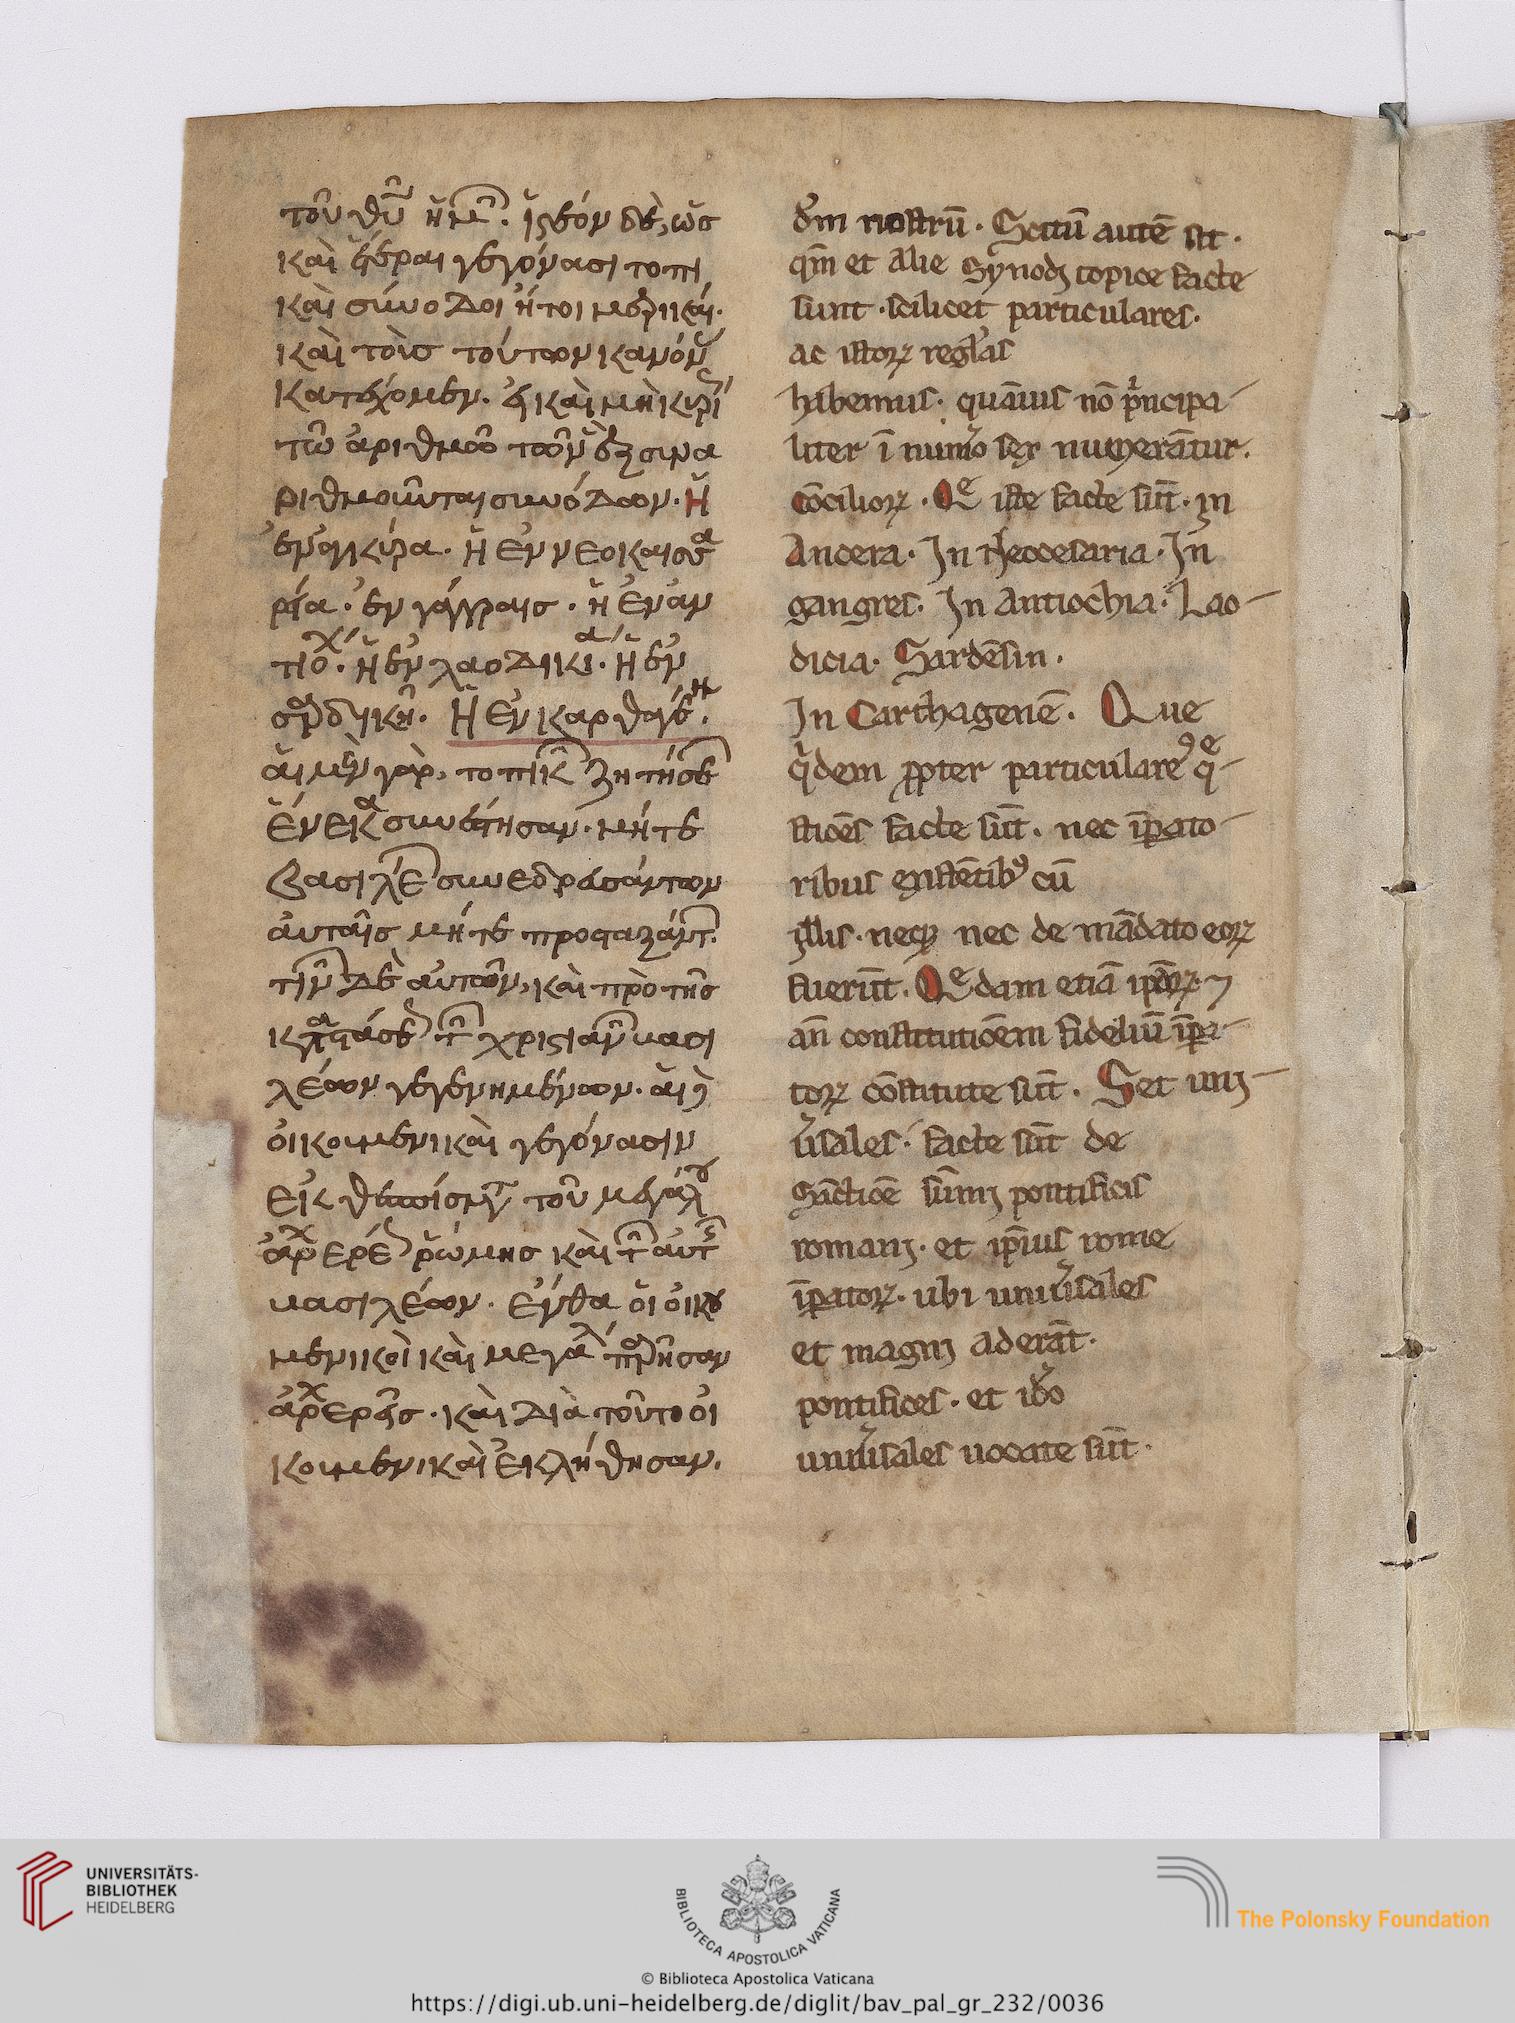 τοῦ θῦ ἡμῶ. ἰστέον δὲ, ὡς
καὶ ἕτεραι γεγόνασι τοπι
καὶ σύνοδοι ἤτοι μερικαί.
καὶ τοῖς τούτων κανόν
κατεχόμεν. εἰ καὶ μὴ κυρί
τῶ ἀριθμῶ τῶν ἓξ συνα
ριθμοῦνται συνόδων. Ἡ
ἐν ἀγκύρα. ἡ ἐν νεοκαισα
ρεία. ἐν γάγγραις. ἡ ἐν ἀν
τιοχ. ἡ ἐν λαοδικεία. ἡ ἐν
σαρδικῆ. Ἡ ἐν καρθαγένη.
αἱ μὲν γὰρ, τοπικῶν ζητήσε
ἕνεκα συνέστησαν. μήτε
βασιλέ συνεδρασάντων
αὐταῖς μήτε προσταξάντ.
τιν δὲ αὐτῶν, καὶ πρὸ τῆς
καταστάσε τ χριστιαν βασι
λέων γεγενημένων. αἱ δ
οἰκουμενικαὶ γεγόνασιν
ἐκ θεσπίσματ τοῦ μεγάλου
ἀρχιερέ ῥώμης καὶ τ αὐτ
βασιλέων. ἔνθα οἱ οἰκου
μενικοὶ καὶ μεγάλ παρῆσαν
ἀρχιερεῖς. καὶ διὰ τοῦτο οἰ
κουμενικαὶ ἐκλήθησαν.
dm nostrū. Scitū autē sit.
qm̄ et alie Synodi topice facte
sunt. scilicet particulares.
ac istoꝝ regulas
habemus. quāuis nō principa
liter ī numero sex numerātur.
cōcilioꝝ. Que iste facte sūt. in
Ancera. In Neocesaria. In
gangres. In Antiochia. Lao
dicia. Sardēsin.
In Carthagenē. Que
quidem propter particulares que
stiōes facte sūt. nec īperato
ribus existētibꝰ cū
illis. neqꝫ nec de mādato eoꝝ
fuerūt. Quedam etiā ipsaꝝ
an̄ constitutiōem fideliū īpera
toꝝ cōstitute sūt. Set uni
uersales. facte sūt de
Sāctiōe summi pontificis
romani. et ipsius rome
īperatoꝝ. ubi uniuersales
et magni aderāt.
pontifices. et ideo
uniuersales uocate sūt.
UNIVERSITÄTS-
BIBLIOTHEK
HEIDELBERG
BIBLIOTECA APOSTOLICA VATICANA
The Polonsky Foundation
© Biblioteca Apostolica Vaticana
https://digi.ub.uni-heidelberg.de/diglit/bav_pal_gr_232/0036